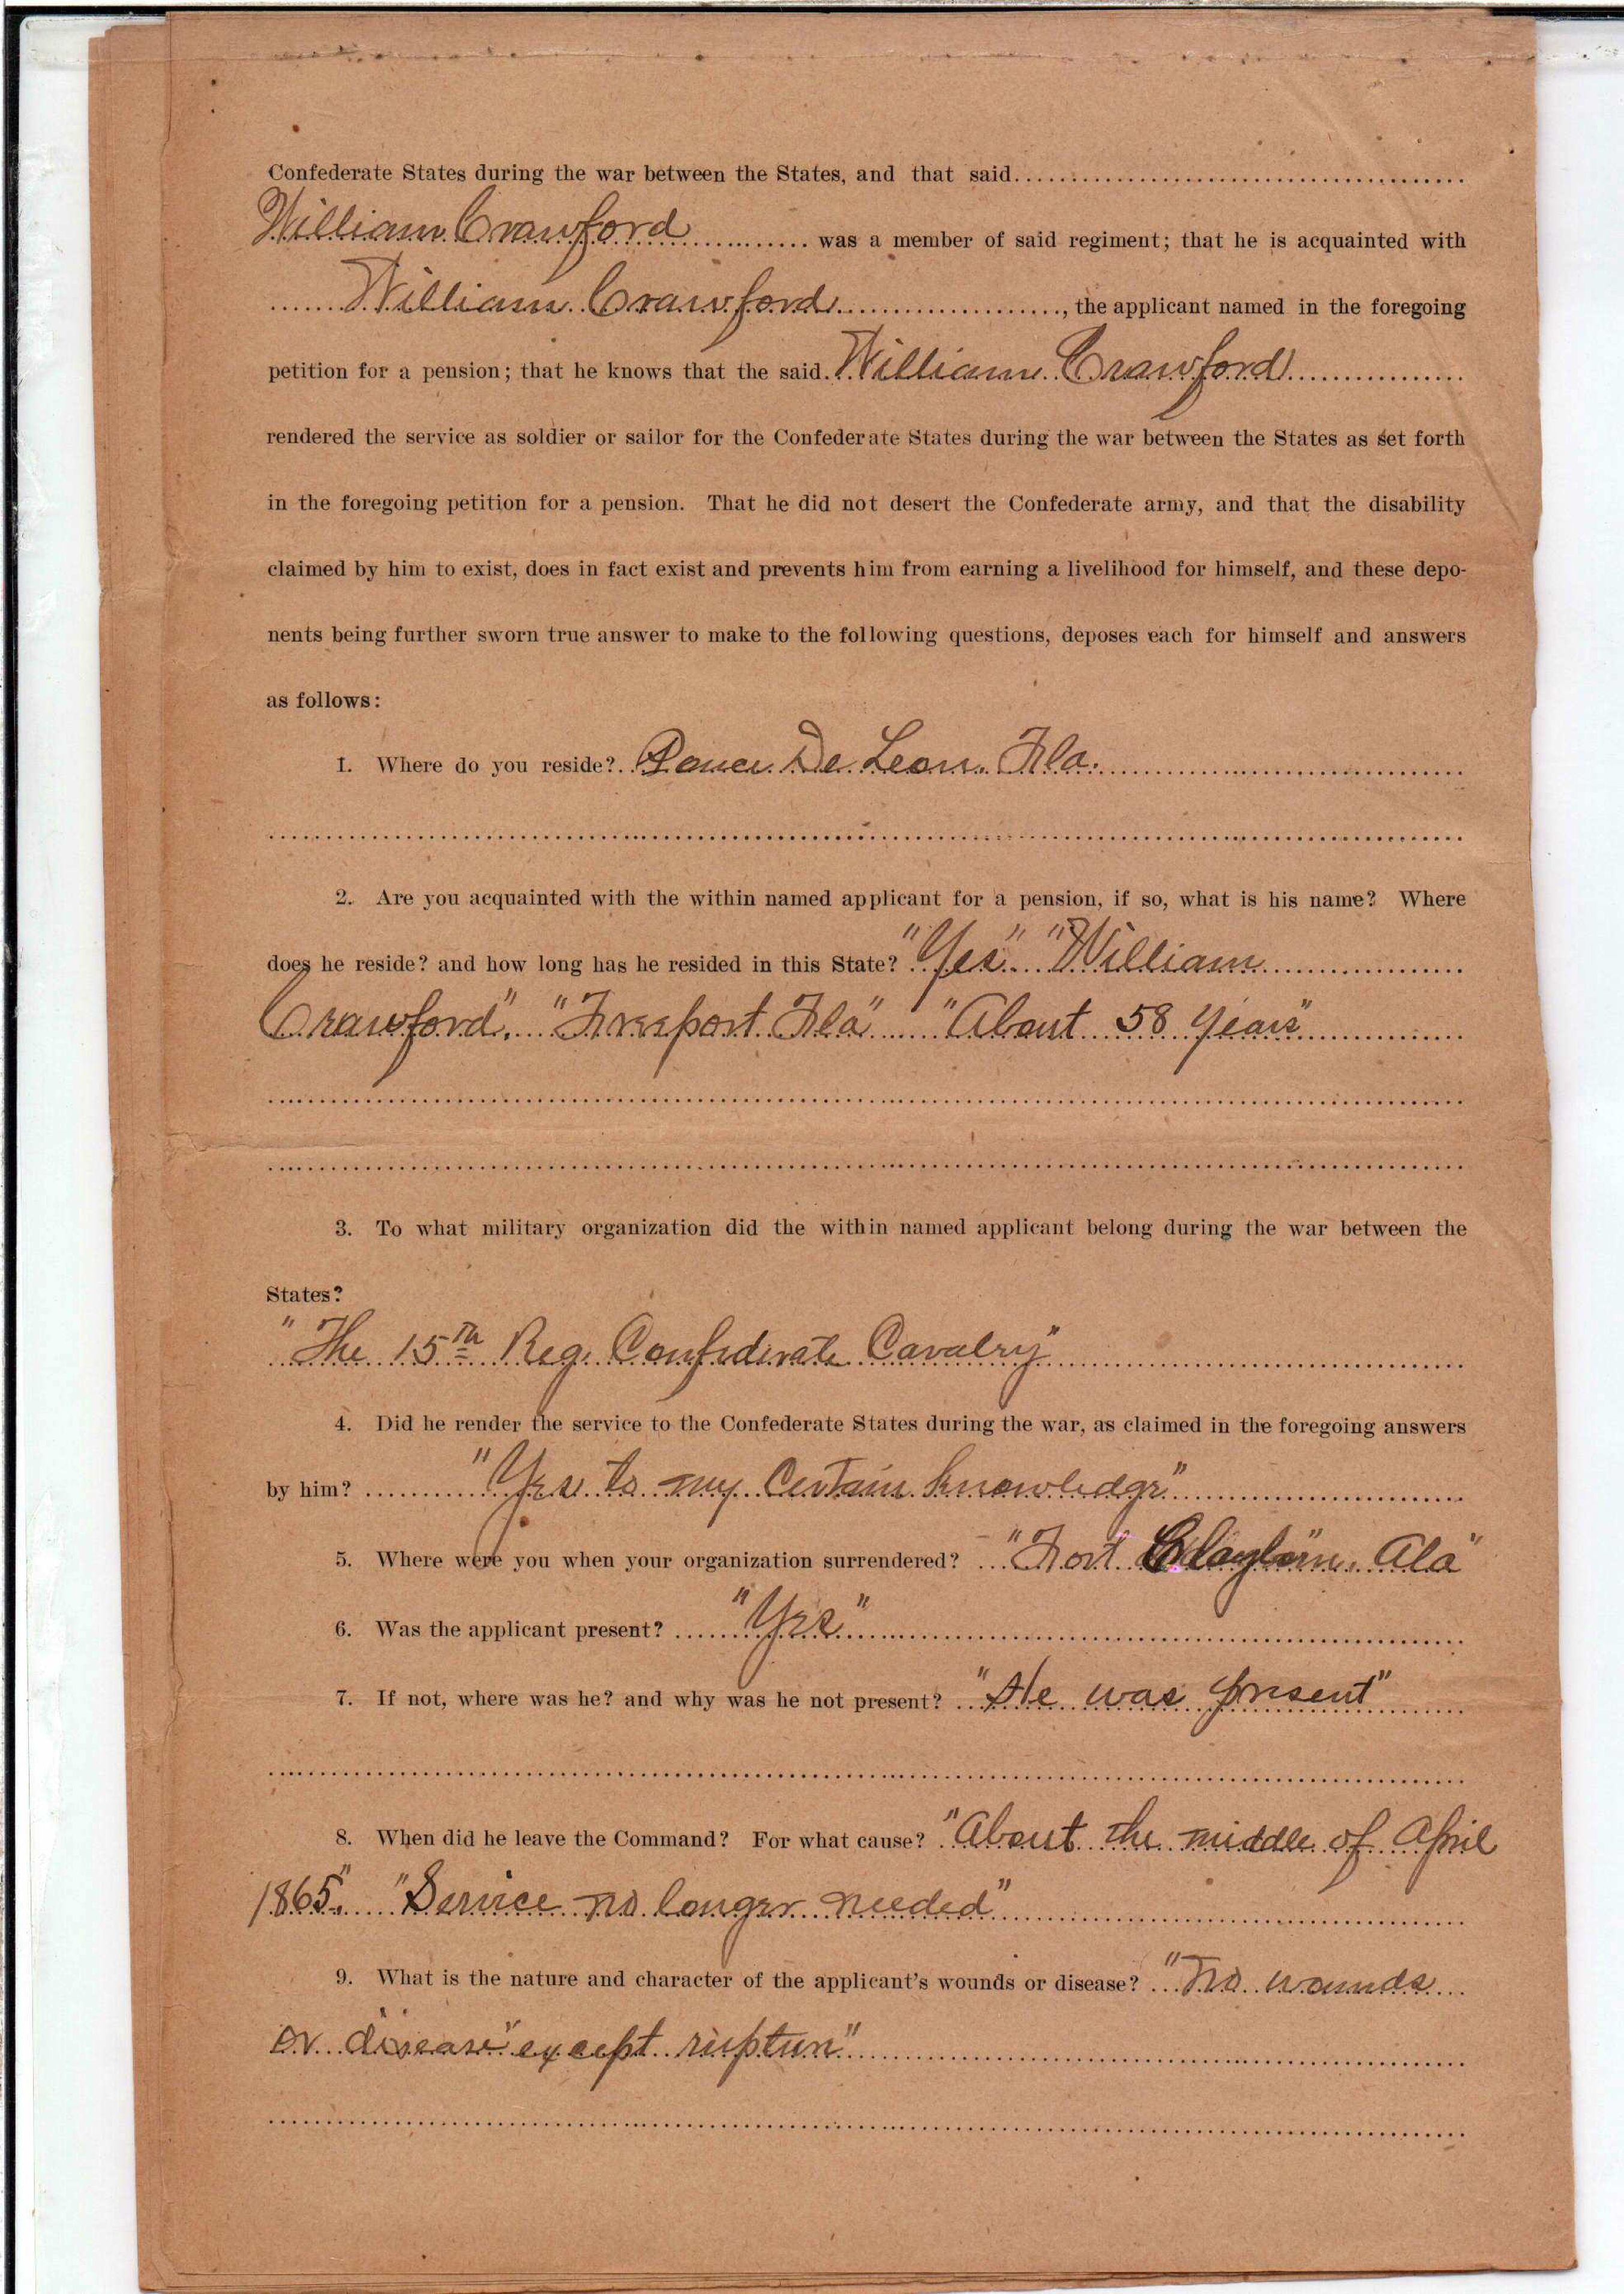 Confederate States during the war between the States, and that said
William Crawford was a member of said regiment; that he is acquainted with
William Crawford, the applicant named in the foregoing
petition for a pension; that he knows that the said William Crawford
rendered the service as soldier or sailor for the Confederate States during the war between the States as set forth
in the foregoing petition for a pension. That he did not desert the Confederate army, and that the disability
claimed by him to exist, does in fact exist and prevents him from earning a livelihood for himself, and these depo-
nents being further sworn true answer to make to the following questions, deposes each for himself and answers
as follows:
1. Where do you reside? Ponce De Leon. Fla.
2. Are you acquainted with the within named applicant for a pension, if so, what is his name? Where
does he reside? and how long has he resided in this State? "Yes" "William
Crawford". "Freeport Fla" "About 58 years"
3. To what military organization did the within named applicant belong during the war between the
States?
"The 15th Reg. Confederate Cavalry"
4. Did he render the service to the Confederate States during the war, as claimed in the foregoing answers
by him? "Yes to my Certain knowledge"
5. Where were you when your organization surrendered? "Fort Ala"
6. Was the applicant present? "Yes"
7. If not, where was he? and why was he not present? "He was present"
8. When did he leave the Command? For what cause? "About the middle of April
1865". "Service no longer needed"
9. What is the nature and character of the applicant's wounds or disease? "No wounds
or disease" except rupture"